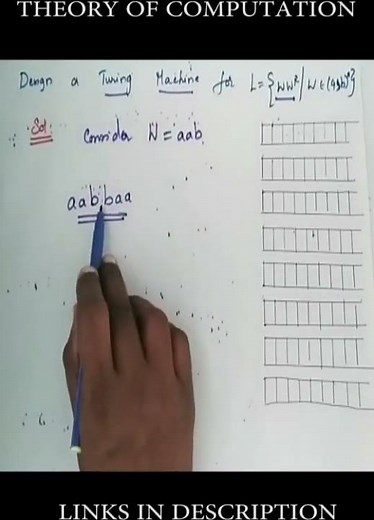 THEORY OF COMPUTATION
Design a Turing Machine for L = {WW^R / W ∈ (a,b)^*}
Sol: Consider W = aab.
aabbaa
LINKS IN DESCRIPTION